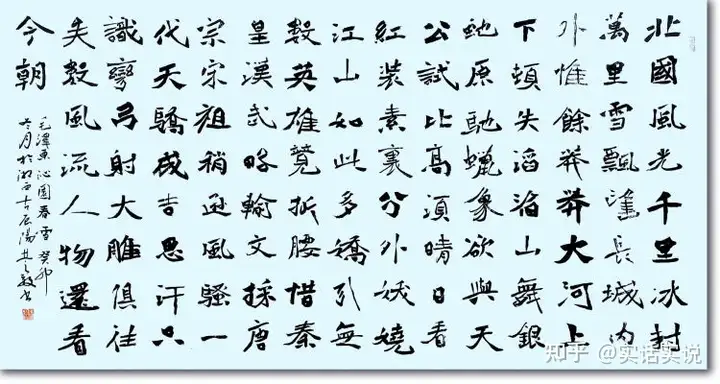 北國風光千里冰封
萬里雪飄望長城內
外惟餘莽莽大河上
下頓失滔滔山舞銀
蛇原馳蠟象欲與天
公試比高須晴日看
紅裝素裹分外妖嬈
江山如此多嬌引無
數英雄競折腰惜秦
皇漢武略輸文採唐
宗宋祖稍遜風騷一
代天驕成吉思汗只
識彎弓射大雕俱往
矣數風流人物還看
今朝
毛澤東沁園春雪癸卯
冬月於湘西古辰陽書
知乎 @实话实说